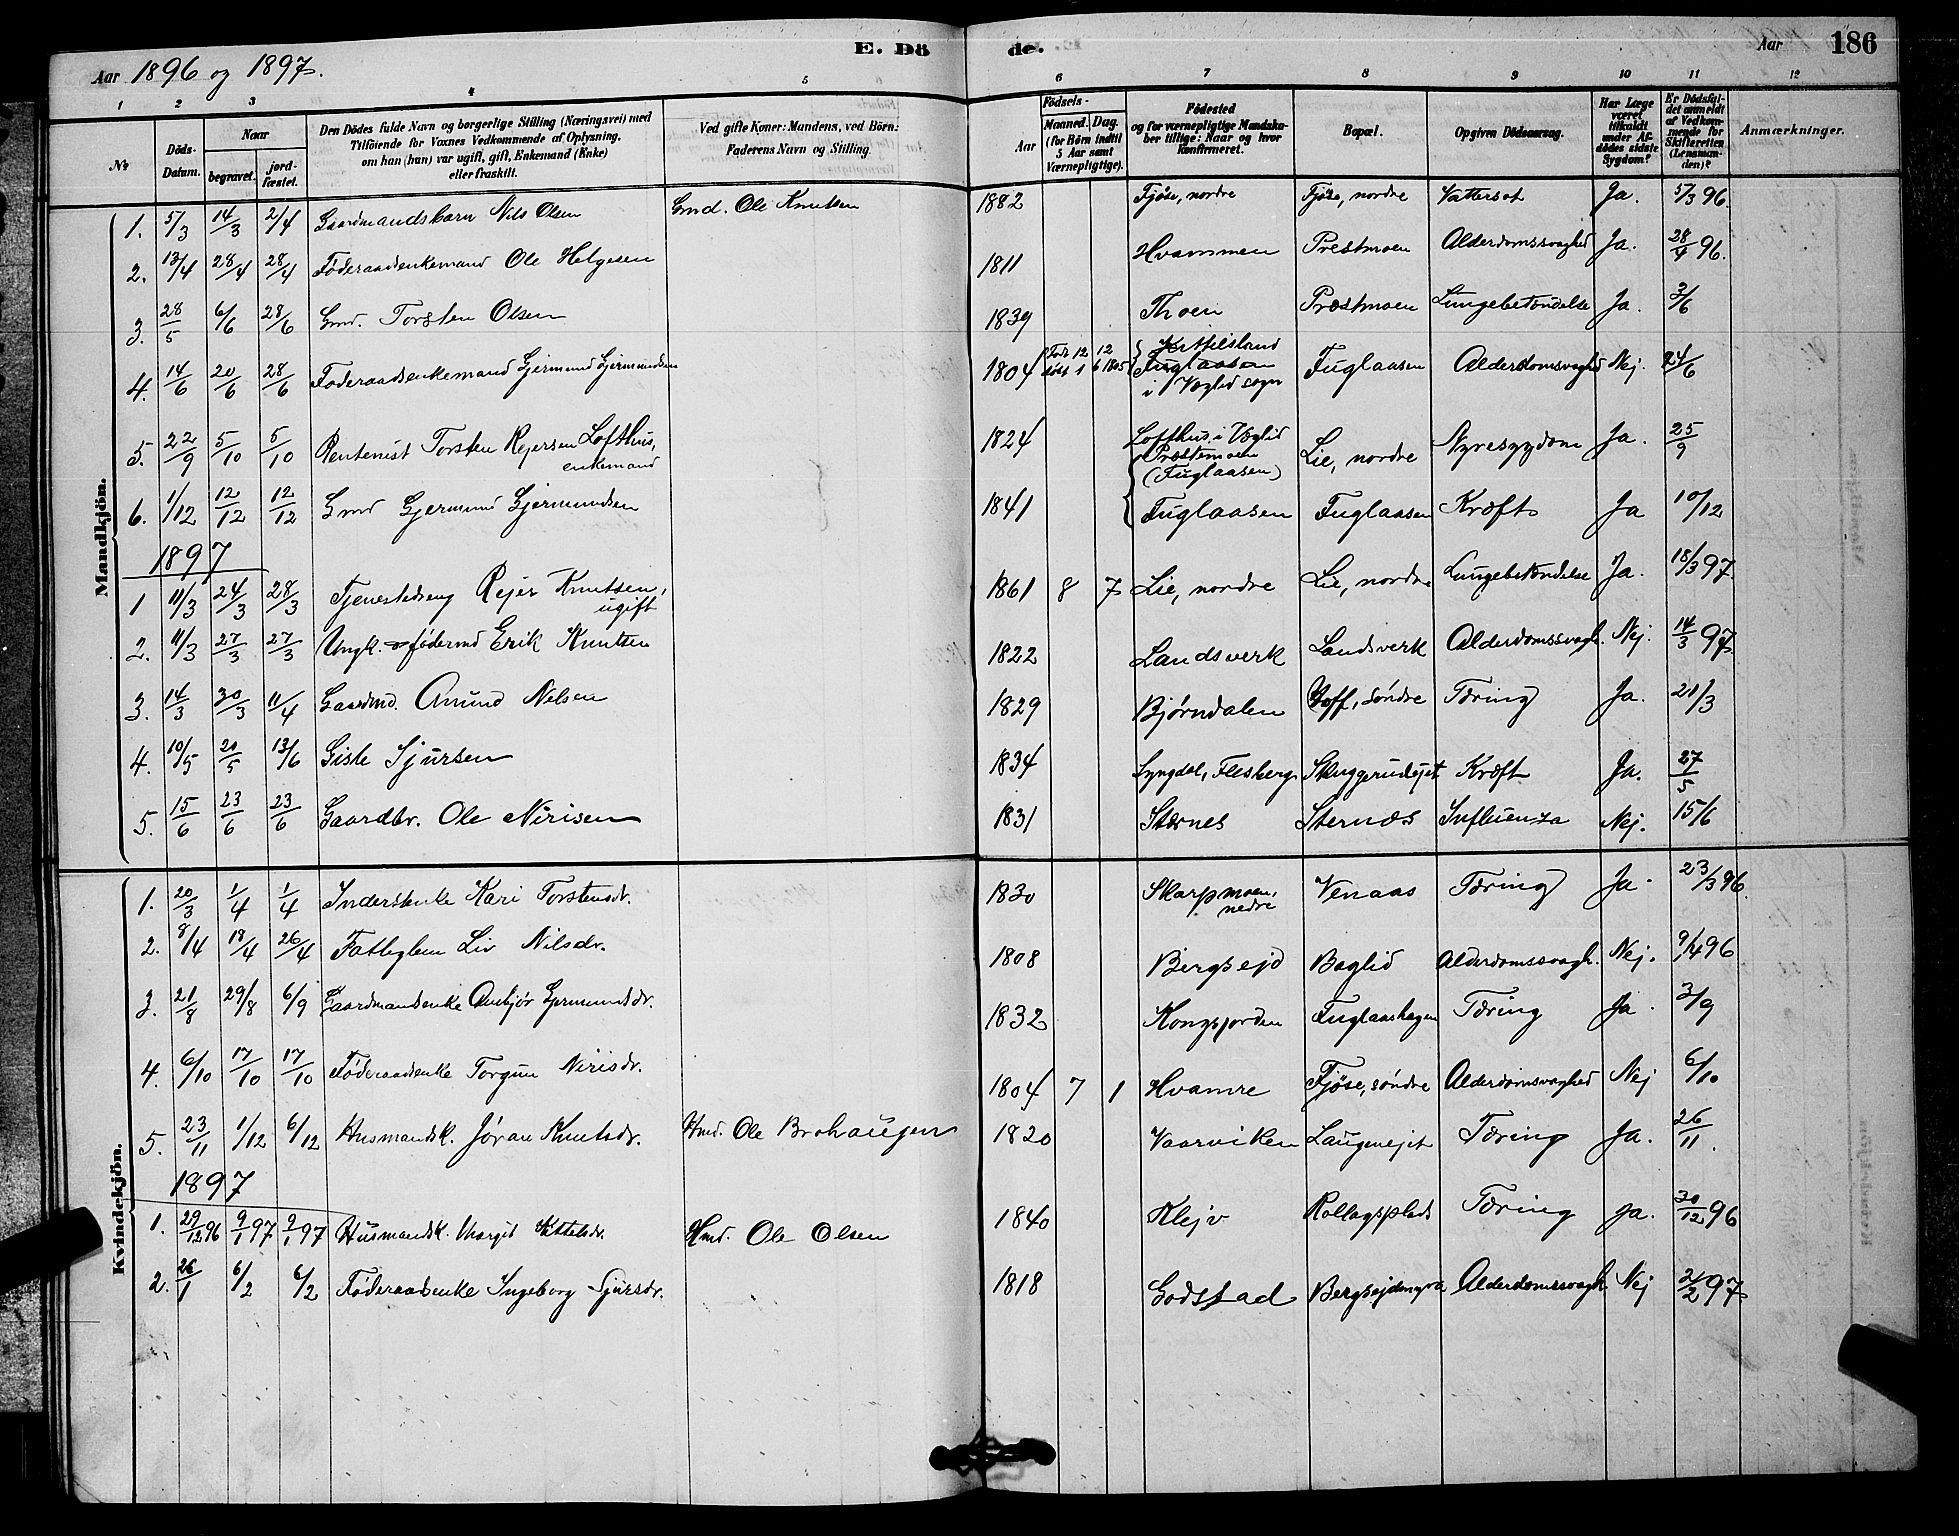 E. Dö de. Aar 186
Aar 1896 og 1897.
1 2 3 4 5 6 7 8 9 10 11 12
No
Döds-Datum.
Naar
begravet.
jordfæstet.
Den Dödes fulde Navn og borgerlige Stilling (Næringsvei) med
Tilföiende for Voxnes Vedkommende af Oplysning,
om han (hun) var ugift, gift, Enkemand (Enke)
eller fraskilt.
Ved gifte Koner: Mandens, ved Börn:
Faderens Navn og Stilling
Födsels-
Aar
Maaned. Dag.
(for Börn indtil
5 Aar samt
Værnepligtige).
Födested
og for værnepligtige Mandska-
ber tillige: Naar og hvor
konfirmeret.
Bopæl.
Opgiven Dödsaarsag.
Har Læge
været
tilkaldt
under Af-
dödes sidste
Sygdom?
Er Dödsfal-
det anmeldt
af Vedkom-
mende for
Skifteretten
(Lensman-
den)?
Anmærkninger.
Mandkjön.
1. 5/3 14/3 2/4 Gaardmandsbarn Nils Olsen Gmd. Ole Knutsen 1882 Fjöse, nordre Fjöse, nordre Vattersot Ja. 5/3 96.
2. 13/4 28/4 28/4 Føderaadsenkemand Ole Helgesen 1811 Hvammen Prestmoen Alderdomssvaghed Ja. 28/4 96.
3. 28/5 6/6 28/6 Gmd. Torsten Olsen 1839 Thoen Præstmoen Lungebetændelse Ja. 3/6
4. 14/6 20/6 28/6 Føderaadsenkemand Gjermund Gjermundsen 1804 Født 12 12 døbt 1 6 1805 Kittilsland
Fuglaasen
i Væglid sogn Fuglaasen Alderdomsvaghed Nej. 24/6
5. 22/9 5/10 5/10 Rentenist Torsten Rejersen Lofthus,
enkemand 1824 Lofthus i Væglid
Præstemoen
(Fuglaasen) Lie, nordre Nyresygdom Ja. 25/9
6. 1/12 12/12 12/12 Gmd Gjermund Gjermundsen 1841 Fuglaasen Fuglaasen Kræft Ja 10/12
1897
1 11/3 24/3 28/3 Tjenestedreng Rejer Knutsen,
ugift 1861 8 7 Lie, nordre Lie, nordre Lungebetændelse Ja. 18/3 97.
2. 11/3 27/3 27/3 Ungk. fødermd Erik Knutsen 1822 Landsverk Landsverk Alderdomssvagh. Nej. 14/3 97.
3. 14/3 30/3 11/4 Gaardmd. Amund Nilsen 1829 Bjørndalen Hoff, søndre Tæring Ja. 21/3
4. 10/5 20/5 13/6 Gisle Sjursen 1834 Lyngdal, Flesberg Skuggerudejet Kræft Ja. 27/5
5. 15/6 23/6 23/6 Gaardbr. Ole Nirisen 1831 Stærnes Sternæs Influenza Nej. 15/6
Kvindekjön.
1. 20/3 1/4 1/4 Inderstenke Kari Torstensdr. 1830 Skarpmoen,
nedre Venaas Tæring Ja. 23/3 96.
2. 8/4 18/4 26/4 Fattiglem Liv Nilsdr. 1808 Bergsejd Baglid Alderdomssvagh. Nej. 9/4 96
3. 21/8 29/8 6/9 Gaardmandsenke Anbjør Gjermundsdr. 1832 Kongsjorden Fuglaashagen Tæring Ja. 3/9
4. 6/10 17/10 17/10 Føderaadsenke Torgun Nirisdr. 1804 7 1 Hvamre Fjøse, søndre Alderdomsvaghed Nej 6/10
5. 23/11 1/12 6/12 Husmandsk. Jøran Knutsdr. Hmd. Ole Brohaugen 1820 Vaarviken Laugmejet Tæring Ja. 26/11.
1897
1. 29/12 96 9/1 97 9/1 97 Husmandsk. Margit Kittelsdr. Hmd. Ole Olsen 1840 Klejv Rollagsplads Tæring ja. 30/12 96
2. 26/1 6/2 6/2 Føderaadsenke Ingeborg Sjursdr. 1818 Godstad Alderdomssvagh Nej 2/2 97.